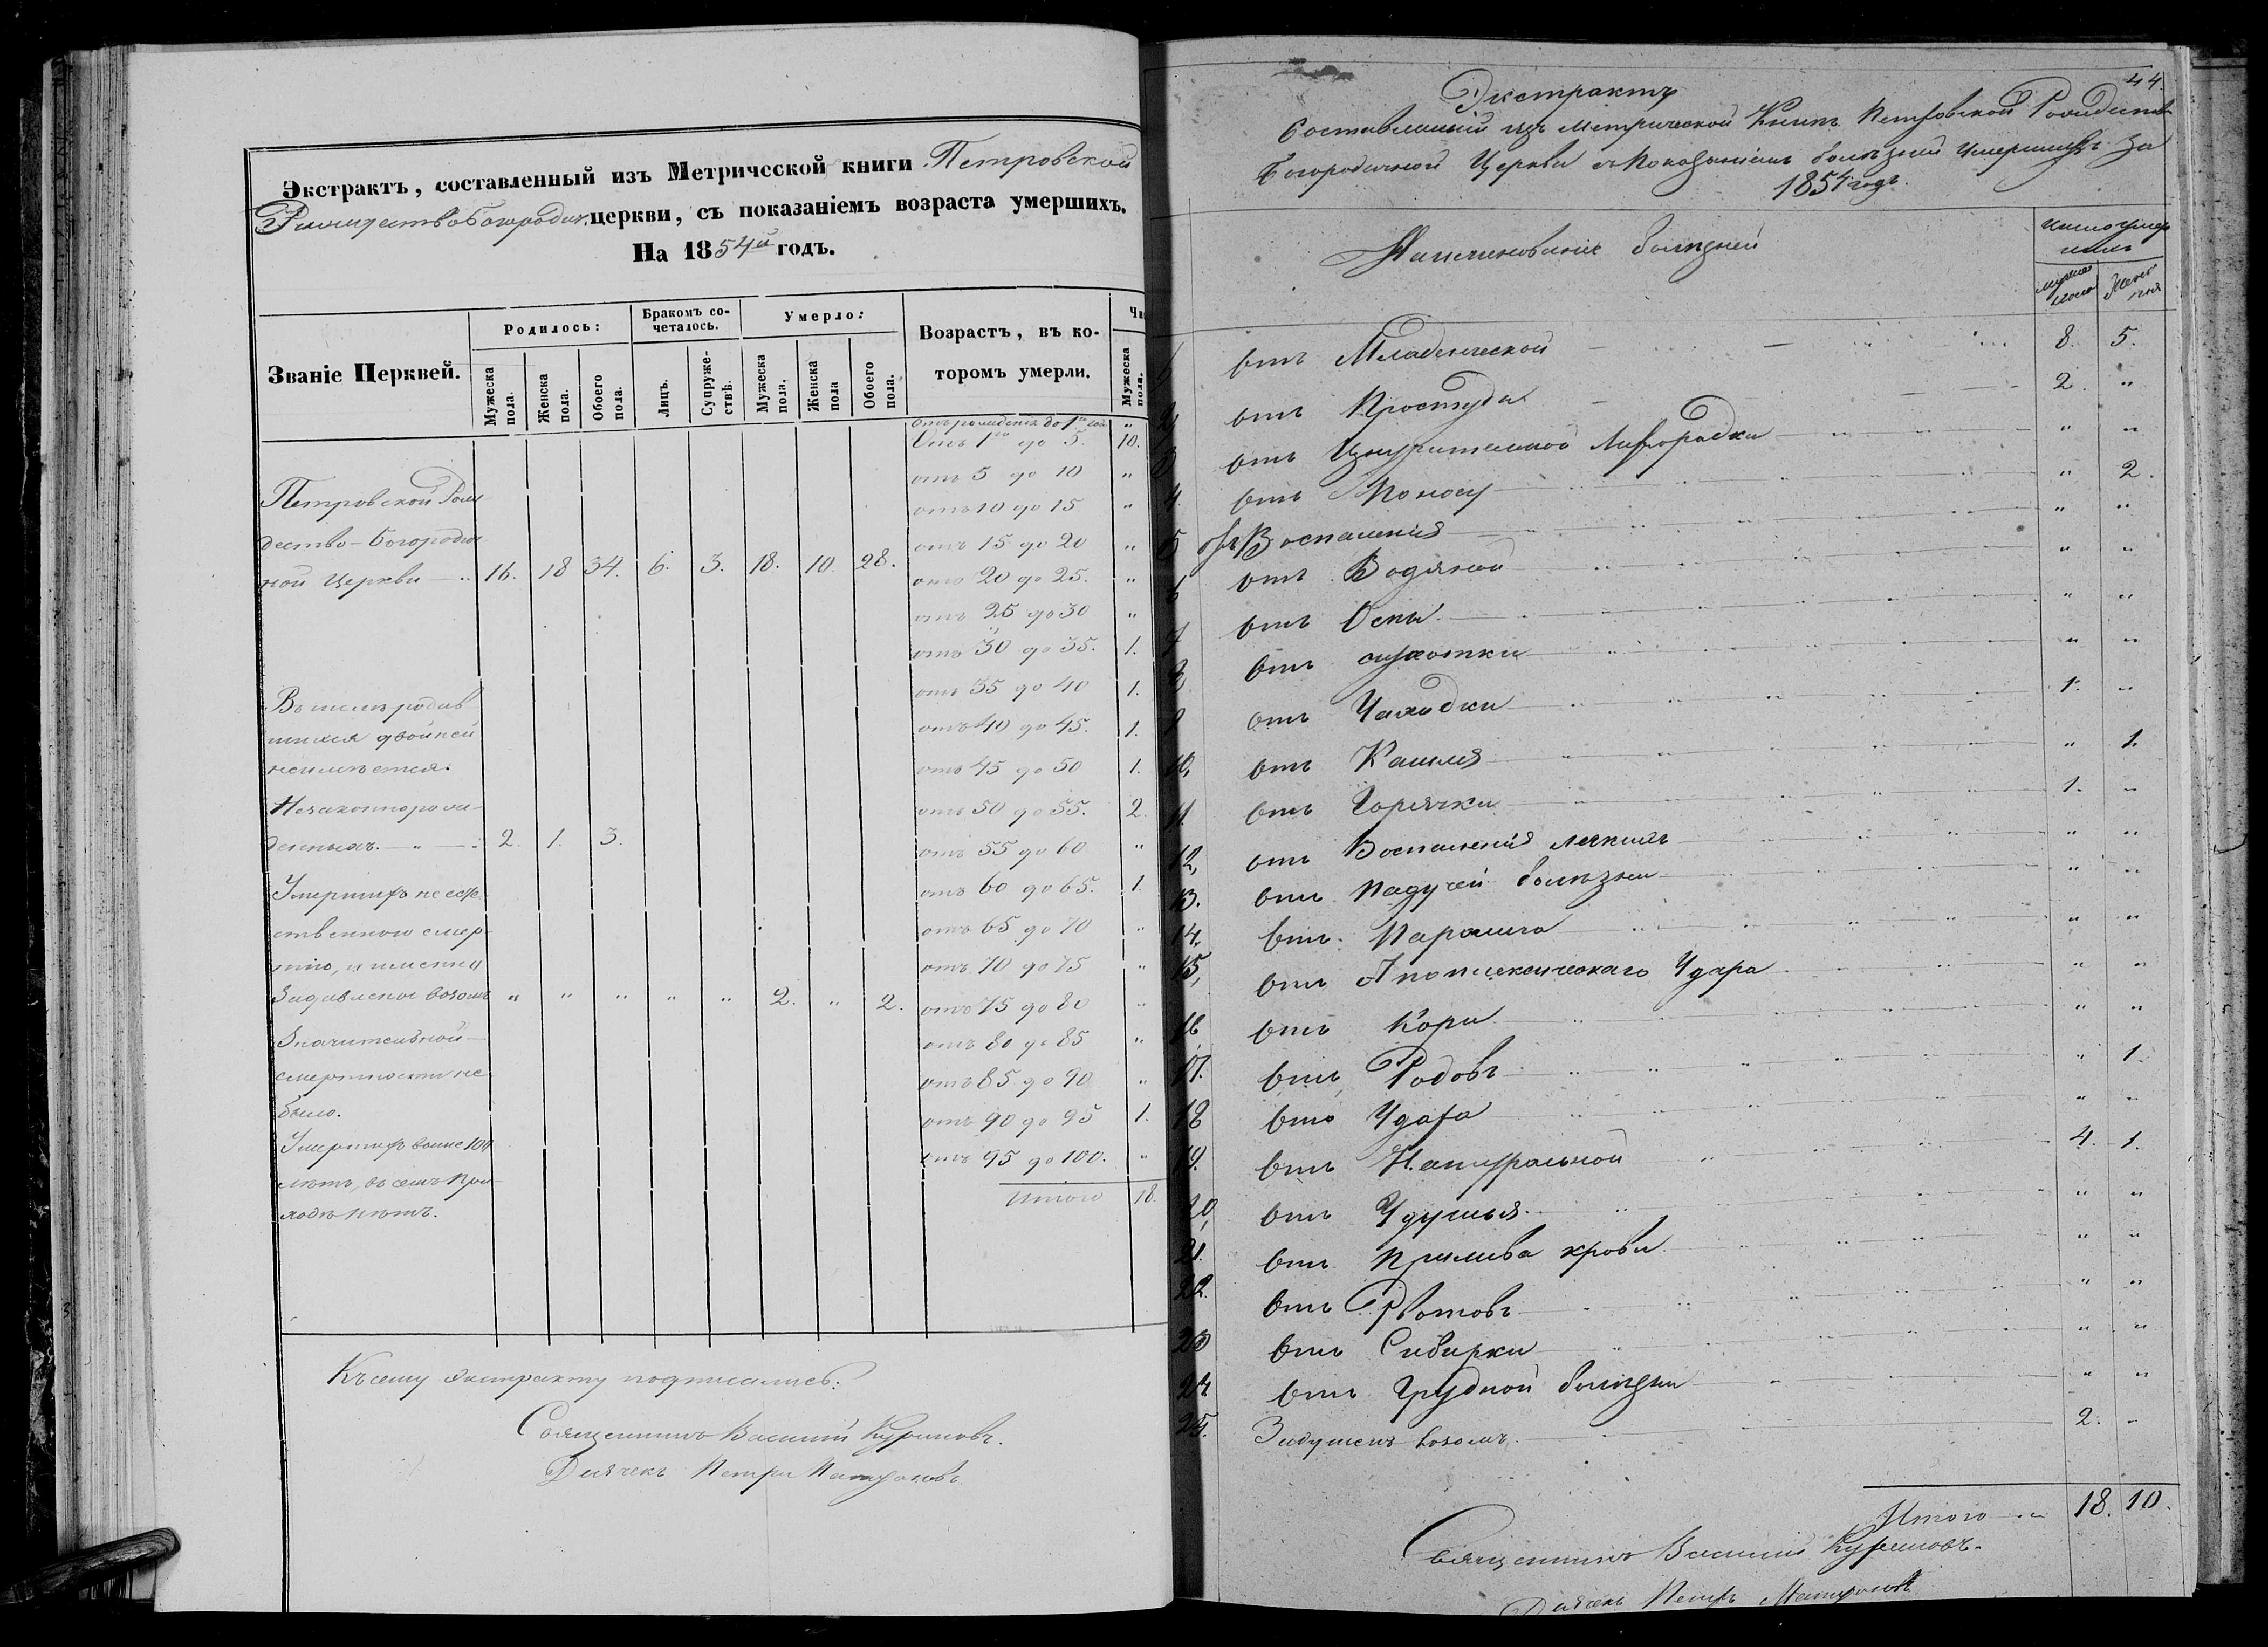 Экстрактъ, составленный изъ Метрической книги Петровской
Рождество Богородич. церкви, съ показаніемъ возраста умершихъ.
На 1854й годъ.
Званіе Церквей.
Родилось:
Бракомъ сочеталось.
Умерло:
Возрастъ, въ которомъ умерли.
Чи
Мужеска пола.
Женска пола.
Обоего пола.
Лицъ.
Супружествъ.
Мужеска пола.
Женска пола
Обоего пола.
Мужеска пола.
отъ рожденія до 1го год. "
Отъ 1го до 5. 10.
отъ 5 до 10 "
отъ 10 до 15 "
отъ 15 до 20 "
отъ 20 до 25. "
отъ 25 до 30 "
отъ 30 до 35. 1.
отъ 35 до 40 1.
отъ 40 до 45. 1.
отъ 45 до 50 1.
отъ 50 до 55. 2.
отъ 55 до 60 "
отъ 60 до 65. 1.
отъ 65 до 70 "
отъ 70 до 75 "
отъ 75 до 80 "
отъ 80 до 85 "
отъ 85 до 90 "
отъ 90 до 95 1.
отъ 95 до 100. "
Итого 18.
Петровской Рож
дество-Богородич
ной Церкви 16. 18 34. 6. 3. 18. 10. 28.
Въ числѣ родив
шихся двойней
неимѣется.
Незаконнорож-
денныхъ. 2. 1. 3.
Умершихъ не есте
ственною смер
тію, и именно
Задавленъ возомъ " " " " " 2. " 2.
Значительной
смертности не
было.
Умершихъ выше 100
лѣтъ, въ семъ При-
ходѣ нѣтъ.
Къ сему экстракту подписались:
Священникъ Василій Куриловъ.
Дьячекъ Петръ
44.
Экстрактъ
Составленный изъ Метрической Книги Петровской Рождество
Богородичной Церкви съ Показаніемъ болѣзней Умершихъ за
1854 годъ.
Наименованіе болѣзней
Число умер
шихъ
мужеска пола
Женска пола
1 отъ Младенческой 8. 5.
2 отъ Простуды 2. "
3 отъ Изнурительной Лихорадки " "
4. отъ Поносу " 2.
5 отъ Воспаленія " "
6 отъ Водяной " "
7 отъ Оспы " "
8 отъ сухотки " "
9 отъ Чахотки 1. "
10, отъ Кашля " 1.
11. отъ Горячки 1. "
12, отъ Воспаленія легкихъ " "
13. отъ Падучей болѣзни " "
14. отъ Паралича " "
15, отъ Апоплексическаго Удара " "
16 отъ Кори " "
17. отъ Родовъ " 1.
18 отъ Удара " "
19. отъ Натуральной 4. 1.
20, отъ Удушья " "
21. отъ Прилива крови " "
22. отъ Рвотовъ " "
23 отъ Сибирки " "
24 отъ Грудной болѣзни " "
25. Задушенъ возомъ 2. "
Итого 18. 10.
Священникъ Василій Куриловъ.
Дьячекъ Петръ